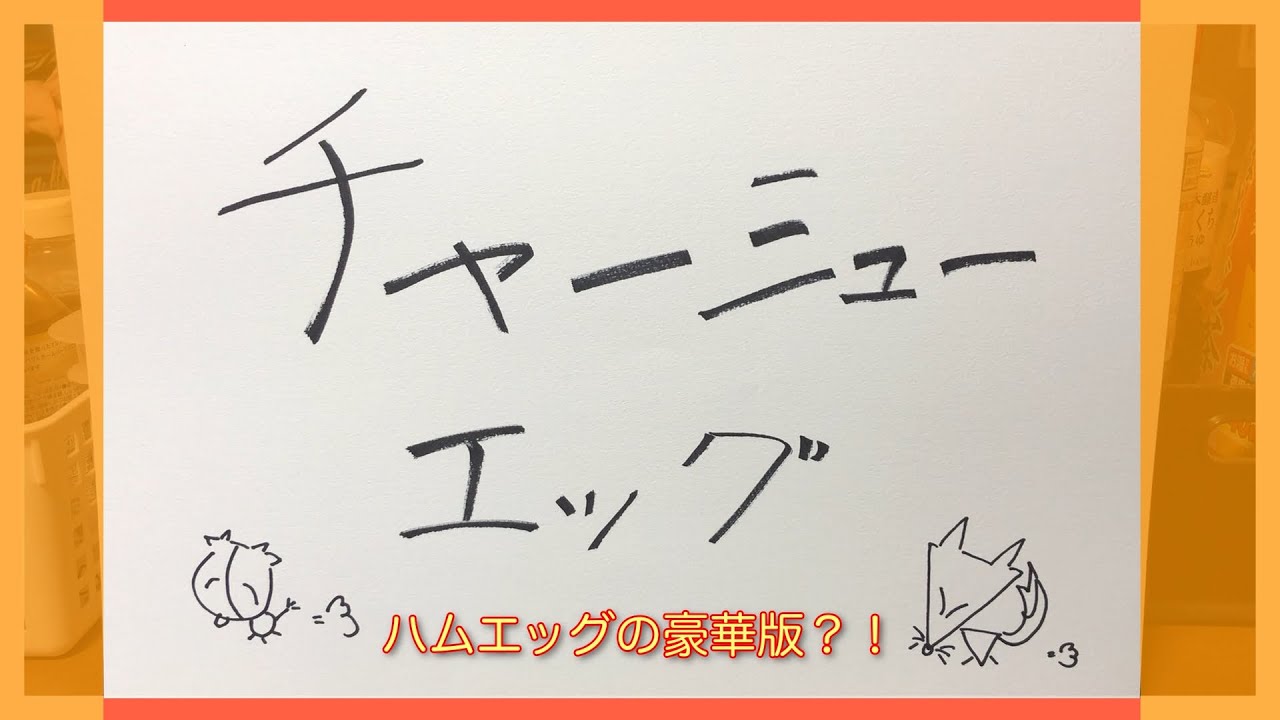 チャーシュー
エッグ
ハムエッグの豪華版？！